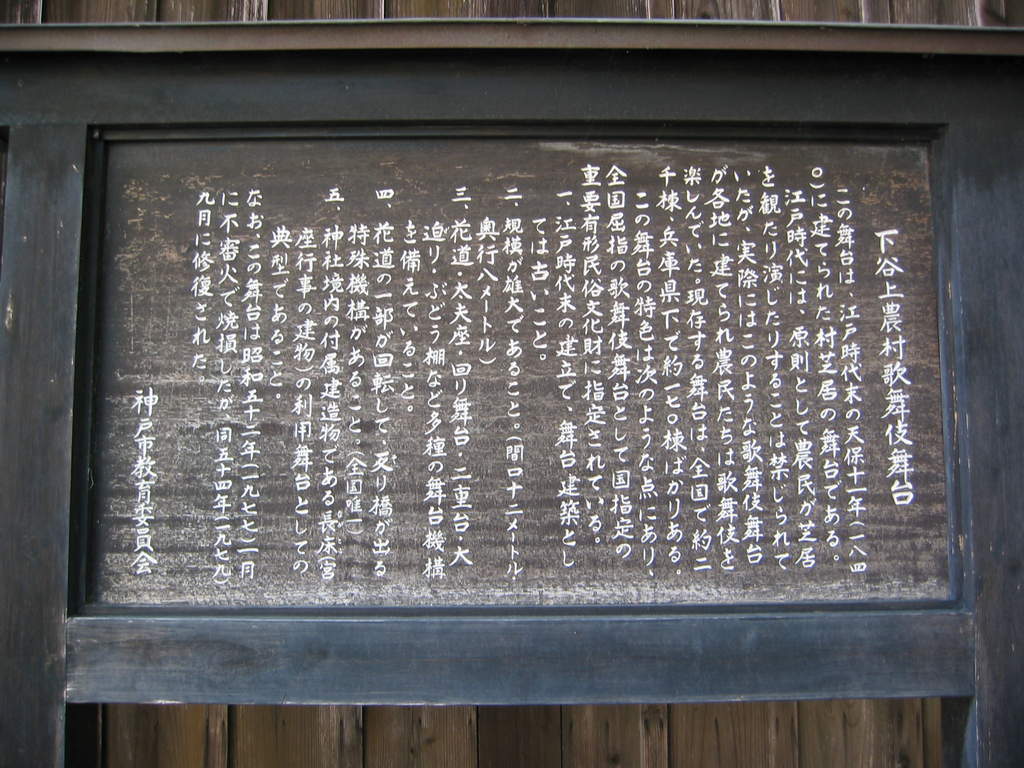 下谷上農村歌舞伎舞台
この舞台は、江戸時代末の天保十一年(一八四
〇)に建てられた村芝居の舞台である。
江戸時代には、原則として農民が芝居
を観たり演じたりすることは禁じられて
いたが、実際にはこのような歌舞伎舞台
が各地に建てられ農民たちは歌舞伎を
楽しんでいた。現存する舞台は、全国で約二
千棟、兵庫県下で約一七〇棟ばかりある。
この舞台の特色は次のような点にあり、
全国屈指の歌舞伎舞台として国指定の
重要有形民俗文化財に指定されている。
一、江戸時代末の建立で、舞台建築とし
ては古いこと。
二、規模が雄大であること。(間口十二メートル
奥行八メートル)
三、花道・太夫座・回り舞台・二重台・大
迫り・ぶどう棚など多種の舞台機構
を備えていること。
四、花道の一部が回転して、反り橋が出る
特殊機構があること。(全国唯一)
五、神社境内の付属建造物である長床(宮
座行事の建物)の利用舞台としての
典型であること。
なお、この舞台は昭和五十二年(一九七七)一月
に不審火で焼損したが、同五十四年(一九七九)
九月に修復された。
神戸市教育委員会